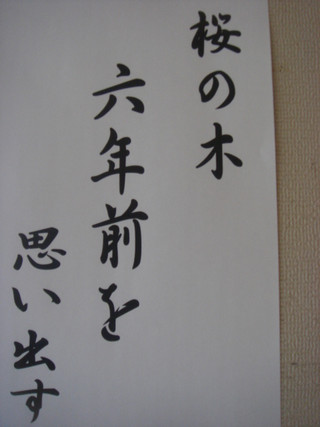 桜の木
六年前を
思い出す